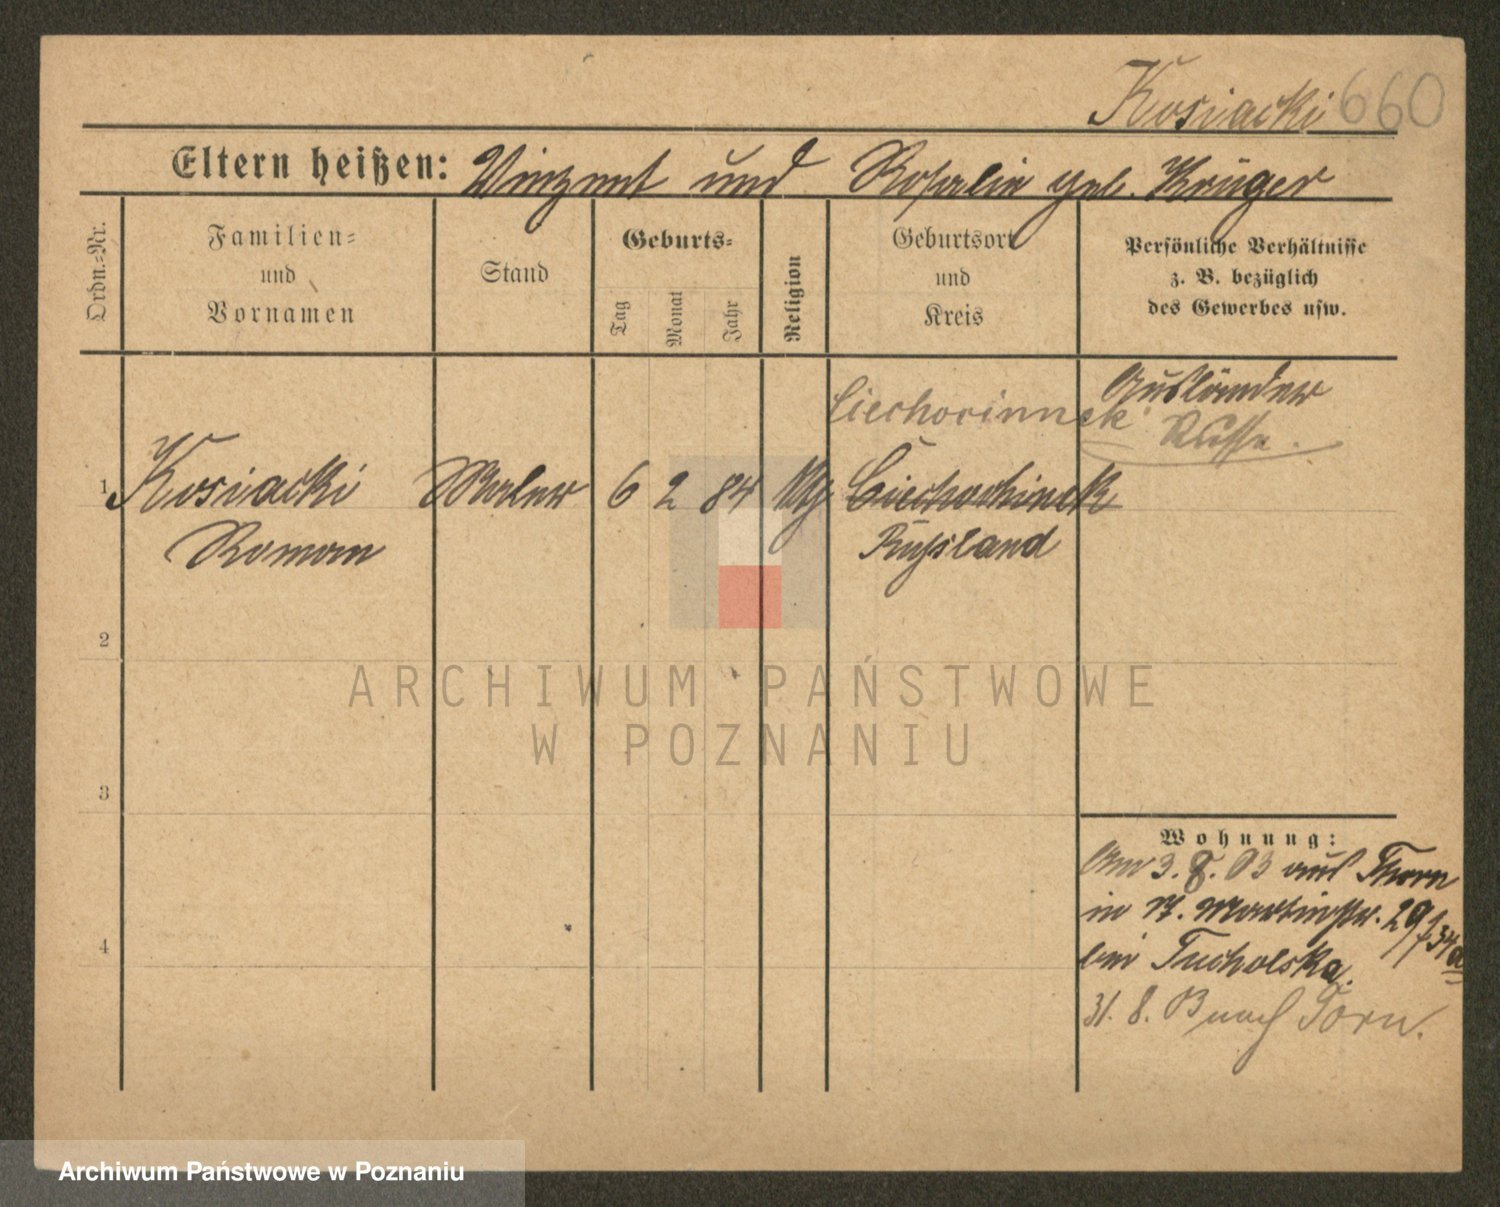 Kosiacki 660
Eltern heißen: Vinzent und Rosalie geb. Krüger
Ordn.-Nr.
Familien-
und
Vornamen
Stand
Geburts-
Tag
Monat
Jahr
Religion
Geburtsort
und
Kreis
Persönliche Verhältnisse
z. B. bezüglich
des Gewerbes usw.
Ausländer
Ciechocinnek Russe.
1 Kosiacki Maler 6 2 84 Ciechochinek
Roman Russland
2
3
4
ARCHIWUM PAŃSTWOWE
W POZNANIU
Wohnung:
Am 3. 8. 03 aus Thorn
in St. Martinstr. 29/34a
bei Tucholska.
31. 8. 03 nach Torn.
Archiwum Państwowe w Poznaniu